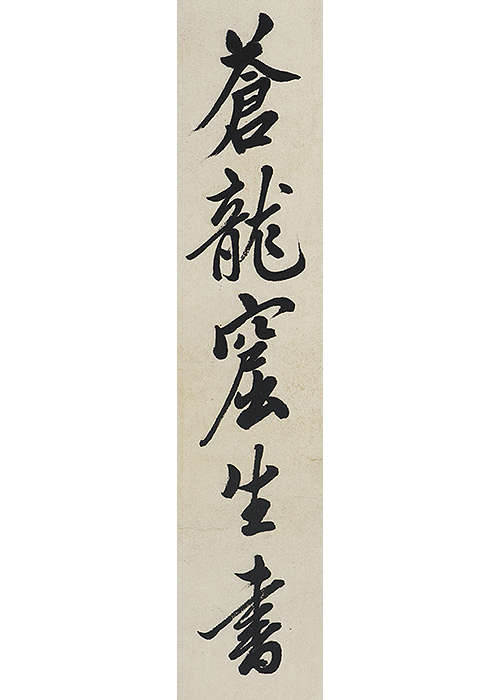 蒼龍窟生書